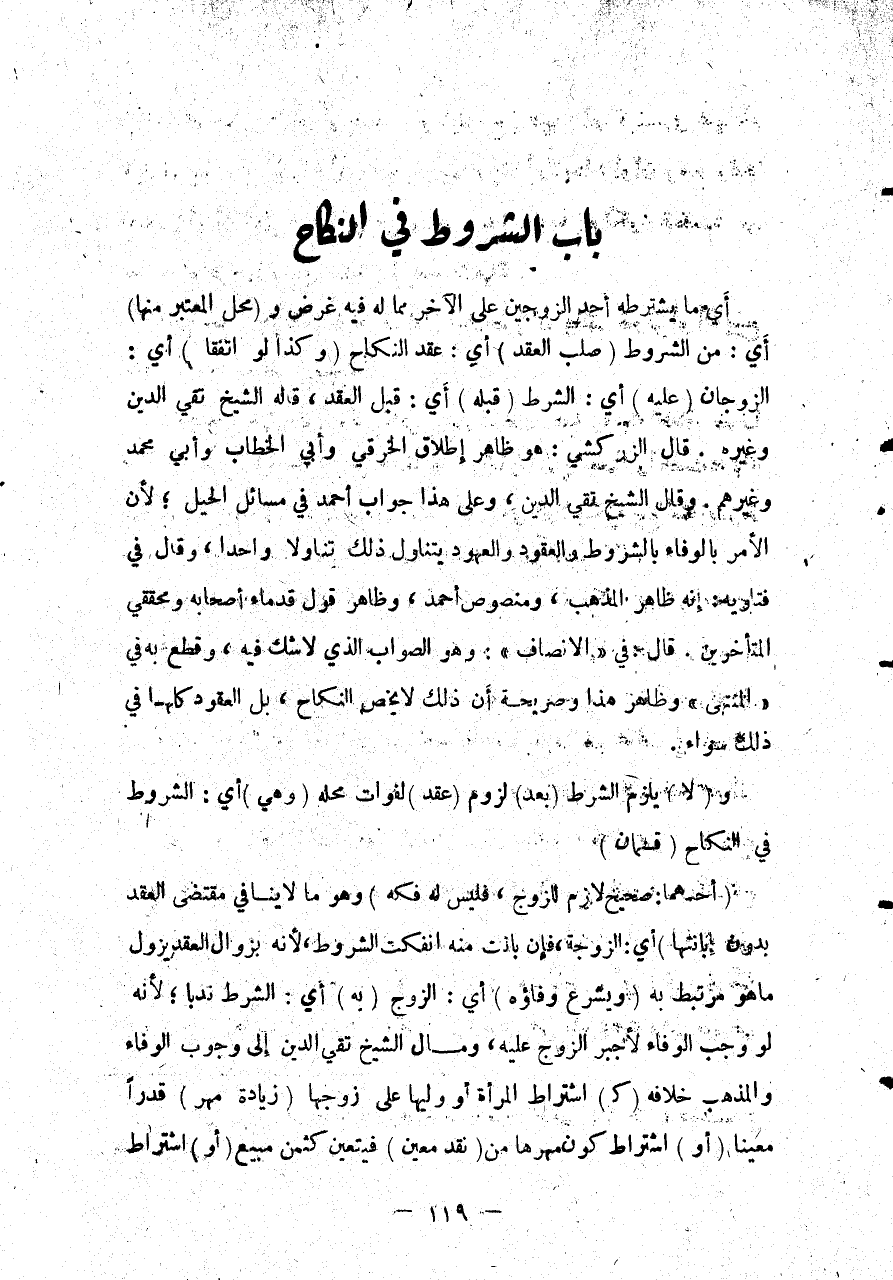 باب الشروط في النكاح
أي ما يشترطه أحد الزوجين على الآخر مما له فيه غرض و (محل المعتبر منها)
أي : من الشروط ( صلب العقد ) أي : عقد النكاح ( وكذا لو اتفقا ) أي :
الزوجان ( عليه ) أي : الشرط ( قبله ) أي : قبل العقد ، قاله الشيخ تقي الدين
وغيره . قال الزركشي : هو ظاهر إطلاق الخرقي وأبي الخطاب وأبي محمد
وغيرهم . وقال الشيخ تقي الدين ، وعلى هذا جواب أحمد في مسائل الحيل ؛ لأن
الأمر بالوفاء بالشروط والعقود والعهود يتناول ذلك تناولا واحدا ، وقال في
فتاويه : إنه ظاهر المذهب ، ومنصوص أحمد ، وظاهر قول قدماء أصحابه ومحققي
المتأخرين . قال في « الانصاف » : وهو الصواب الذي لاشك فيه ، وقطع به في
« المنتهى » وظاهر هذا وصريحة أن ذلك لايخص النكاح ، بل العقود كلها في
ذلك سواء .
و ( لا ) يلزم الشرط (بعد) لزوم (عقد) لفوات محله ( وهي ) أي : الشروط
في النكاح ( قسمان )
( أحدهما : صحيح لازم للزوج ، فليس له فكه ) وهو ما لاينافي مقتضى العقد
بدون إبانتها ) أي : الزوجة ، فإن بانت منه انفكت الشروط ، لأنه بزوال العقد يزول
ماهو مرتبط به ( ويشرع وفاؤه ) أي : الزوج ( به ) أي : الشرط ندبا ؛ لأنه
لو وجب الوفاء لأجبر الزوج عليه ، ومال الشيخ تقي الدين إلى وجوب الوفاء
والمذهب خلافه ( كـ ) اشتراط المرأة أو وليها على زوجها ( زيادة مهر ) قدراً
معينا ( أو ) اشتراط كون مهرها من ( نقد معين ) فيتعين كثمن مبيع ( أو ) اشتراط
— ١١٩ —